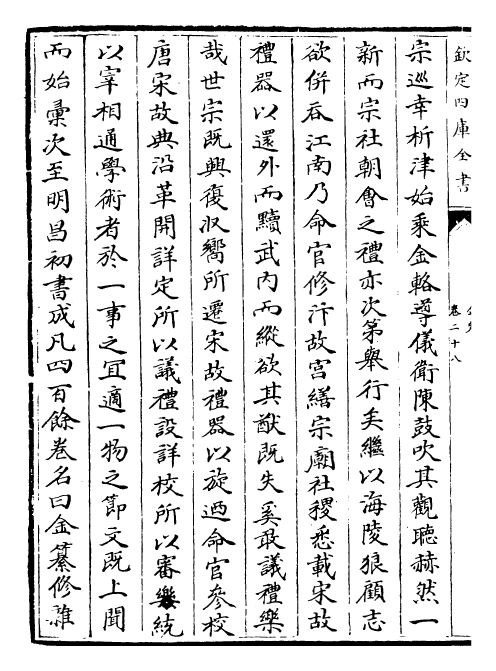 欽定四庫全書
金史
卷二十八
宗巡幸析津始乗金輅導儀衛陳鼓吹其觀聽赫然一
新而宗社朝㑹之禮亦次第舉行矣繼以海陵狼顧志
欲併吞江南乃命官修汴故宫繕宗廟社稷悉載宋故
禮器以還外而黷武内而縱欲其猷既失奚敢議禮樂
哉世宗既興復収嚮所遷宋故禮器以旋廼命官參校
唐宋故典沿革開詳定所以議禮設詳校所以審樂統
以宰相通學術者於一事之宜適一物之節文既上聞
而始彙次至明昌初書成凡四百餘卷名曰金纂修雜